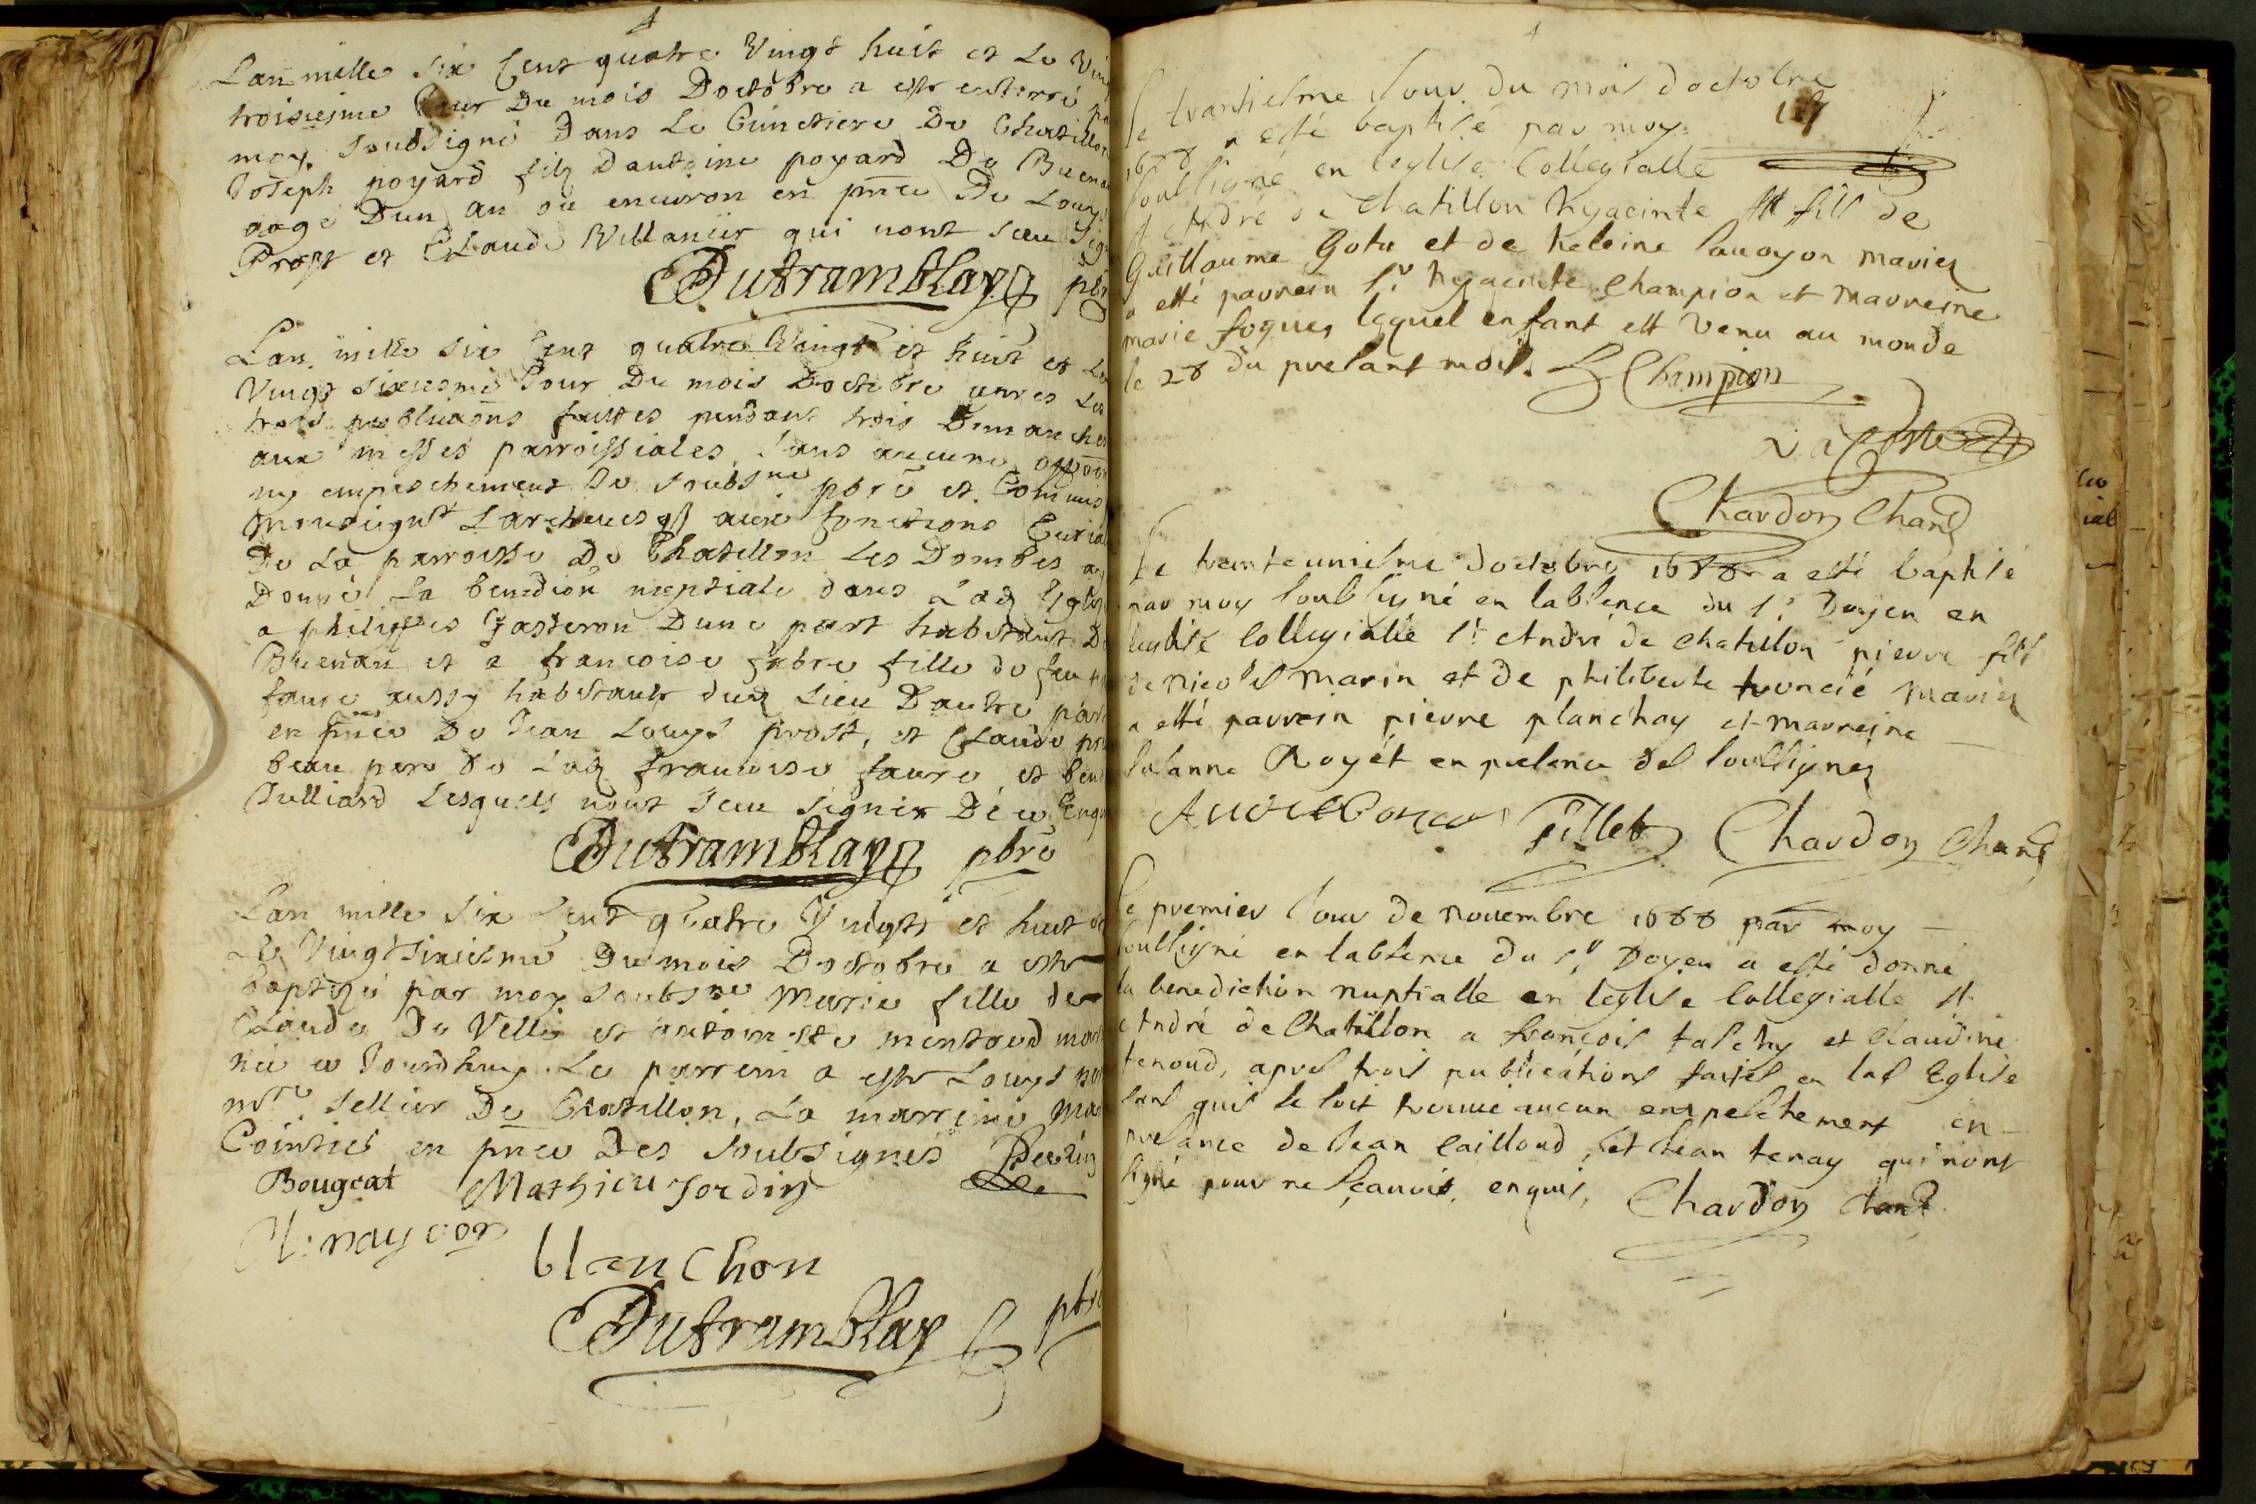 Lan mille six Cent quatre Vingt huit et Le Vin
troisiesme Jour Du mois Doctobre a este enterré
moy soubsigné Dans Le Cimetiere De Chatillon
Joseph poyard filz dantoine poyard De Buenan
aage Dun an ou enuiron en pnce De Louys
Prost et Claude Villanier qui nont sceu sign
Dutramblay pbr
Lan mille six Cent quatre Vingt et huit et Le
Vingt sixiesme Jour Du mois Doctobre apres Les
trois publicaons faittes pendant trois Dimanches
aux messes parroissiales, sans aucune oppoon
ny empeschement Je soubsne pbre et Commis
Monseignr Larcheuesq aux fonctions Curial
De La parroisse De Chatillon Les Dombes ay
Donné La benedion nuptiale dans Lad Eglis
a philippes Gasteron Dune part habitant D
Buenan et a francoise fabre fille de feu
faure aussy habitante dud Lieu Dautre part
en pnce De Jean Louys prost, et Claude
beau pere De Lad francoise faure et ben
Julliard Lesquels nont sceu signer De ce Enqu
Dutramblay pbre
Lan mille six Cent quatre Vingts et huit et
Le Vingtsixiesme Du mois Doctobre a este
baptizé par moy soubsne Marie fille de
Claude De Ville et antoinette montaud mari
née ce Jourdhuy. Le parrein a este Louys
mre sellier De Chatillon, La marreine Ma
Cointier en pnce Des soubsignés
Bougeat Mathieu Jordin
blanchon
Dutramblay pbre
Le trantiesme Jour du mois doctobre
1688 a esté baptisé par moy
soussigné en leglise Collegialle
st André de Chatillon hyacinte fils de
Guillaume Gotu et de heleine sauoyon mariez
a esté parrein sr hyacinte Champion et marreine
marie foques lequel enfant est venu au monde
le 28 du presant mois. Champion
Chardon Chane
Le trenteuniesme doctobre 1688 a esté baptisé
par moy soubsigné en labsence du sr Doyen en
leglise collegialle st André de chatillon pierre fils
de nicolas marin et de philiberte troncié mariez
a esté parrein pierre planchay et marreine
susanne Royét en presence des soussignez
Tillet Chardon Chane
Le premier Jour de nouembre 1688 par moy
soussigné en labsence du sr Doyen a esté donné
la benediction nuptialle en leglise Collegialle st
André de Chatillon a françois talchy et Claudine
tenoud, apres trois publications faites en lad Eglise
sans quis se soit trouué aucun empeschement en
presance de Jean Cailloud, et Jean tenay qui nont
signé pour ne sçauoir, enquis, Chardon Chane